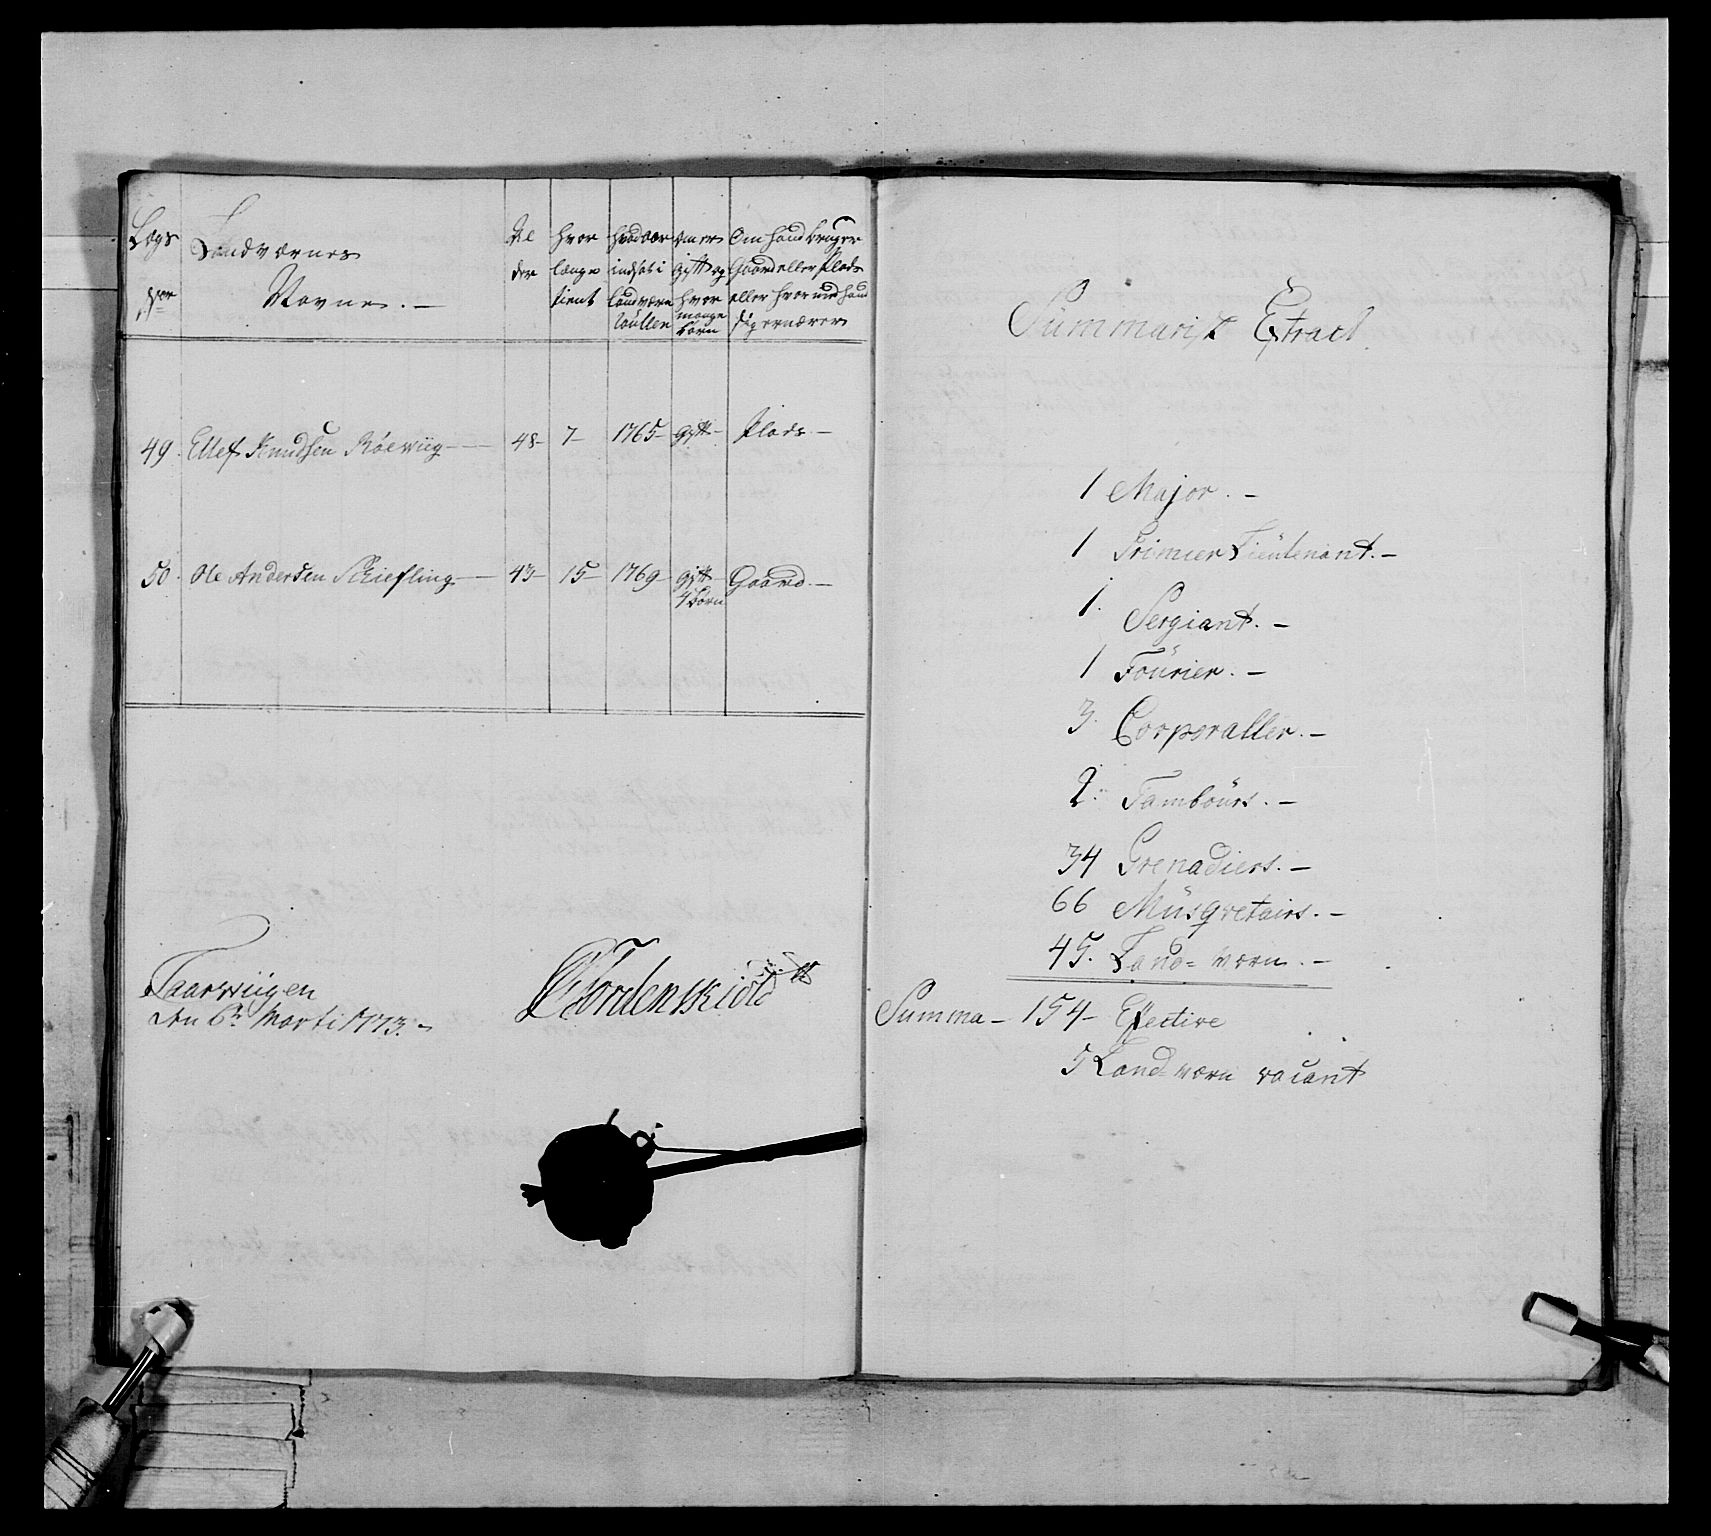 Lægs
No
Landværnes
Navne. —
Al
der
hvor
længe
tient
hvad aar
indsat i
landværn
Roullen
om er
gift og
hvor
mange
børn
Om hand bruger
Gaard eller Plads
eller hvor med hand
sig ernærer
49. Ellef Knudsen Röewiig — 48 — 7 — 1765 — gift — Plads —
50. Ole Andersen Skiefling — 43 — 15 — 1769 — gift — Gaard —
4 børn
Taarwiigen
den 6te Marti 1773. —
Tordenskiold
Summarisk Extract
1 Major. —
1 Primier Lieutenant. —
1. Sergiant. —
1 Fourier. —
3. Corporaller. —
2. Tambours. —
34 Grenadiers. —
66 Musqvetairs. —
45. Land = værn. —
Summa — 154 — Efective
5 Land = værn vacant